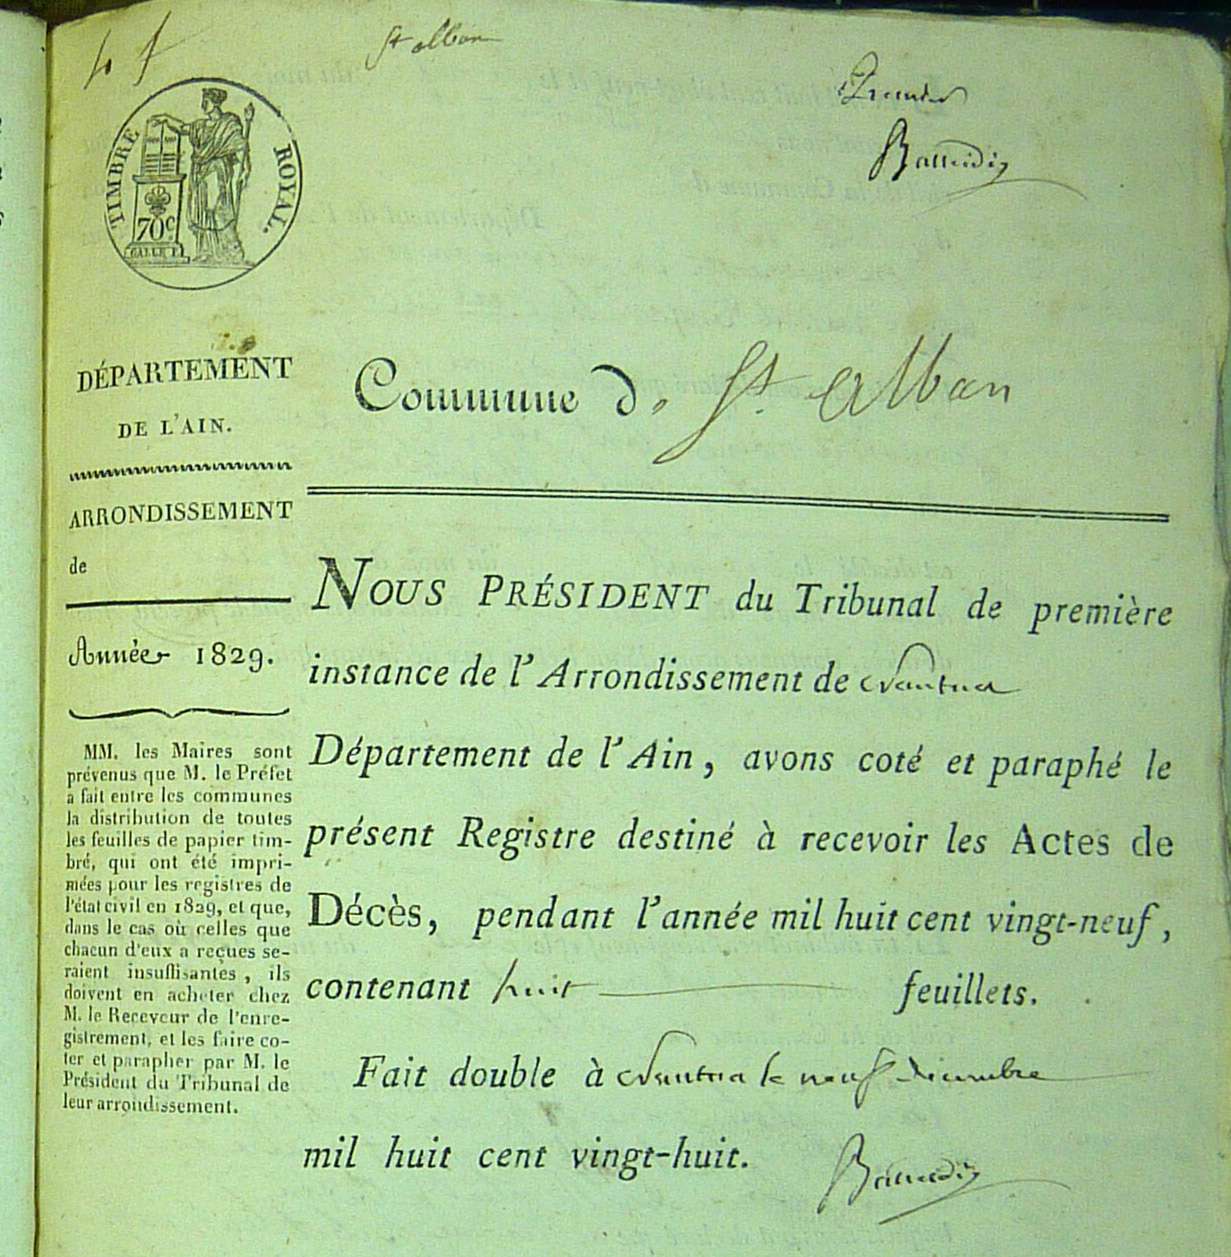 St alban
Premier
TIMBRE ROYAL.
70c
DÉPARTEMENT
DE L'AIN.
Commune de St. Alban
ARRONDISSEMENT
de
Année 1829.
MM. les Maires sont
prévenus que M. le Préfet
a fait entre les communes
la distribution de toutes
les feuilles de papier tim-
bré, qui ont été impri-
mées pour les registres de
l'état civil en 1829, et que,
dans le cas où celles que
chacun d'eux a reçues se-
raient insuffisantes, ils
doivent en acheter chez
M. le Receveur de l'enre-
gistrement, et les faire co-
ter et parapher par M. le
Président du Tribunal de
leur arrondissement.
NOUS PRÉSIDENT du Tribunal de première
instance de l'Arrondissement de Nantua
Département de l'Ain, avons coté et paraphé le
présent Registre destiné à recevoir les Actes de
Décès, pendant l'année mil huit cent vingt-neuf,
contenant huit feuillets.
Fait double à Nantua le neuf décembre
mil huit cent vingt-huit.